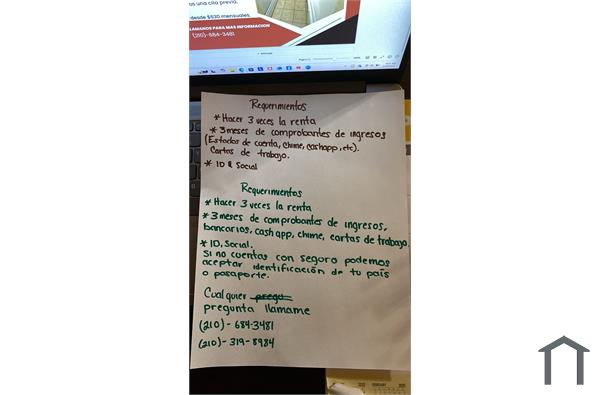 una cita previa.
desde $630 mensuales.
LLAMANOS PARA MAS INFORMACION
(210)-684-3481
Requerimientos
* Hacer 3 veces la renta
* 3 meses de comprobantes de ingresos
(Estados de cuenta, chime, cashapp, etc).
Cartas de trabajo.
* ID & Social
Requerimientos
* Hacer 3 veces la renta
* 3 meses de comprobantes de ingresos,
bancarios, cash app, chime, cartas de trabajo.
* ID, Social.
Si no cuentas con seguro podemos
aceptar identificación de tu país
o pasaporte.
Cualquier pregu
pregunta llamame
(210)-684-3481
(210)-319-8984